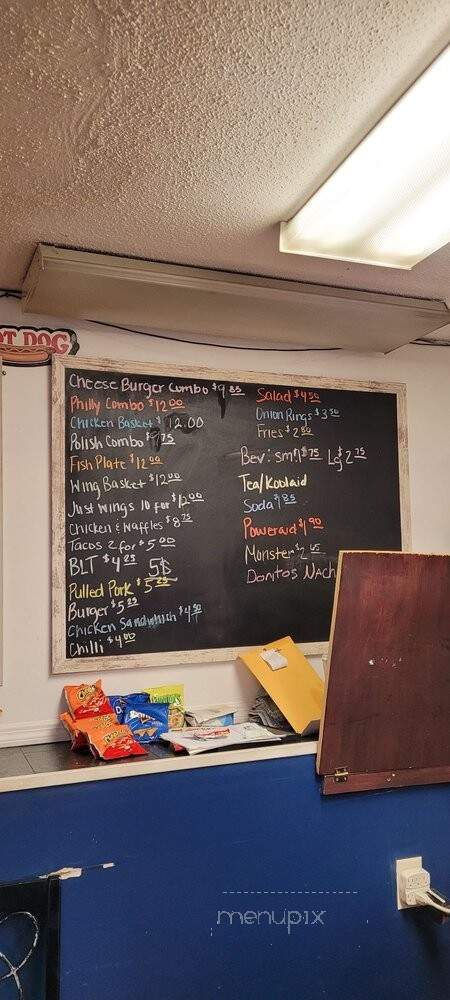 OT DOG
Cheese Burger Combo $9.85
Philly Combo $12.00
Chicken Basket $12.00
Polish Combo $7.75
Fish Plate $12.00
Wing Basket $12.00
Just Wings 10 for $12.00
Chicken & Waffles $8.75
Tacos 2 for $5.00
BLT $4.25 5$
Pulled Pork $5.25
Burger $5.25
Chicken Sandwhich $4.50
Chilli $4.00
Salad $4.50
Onion Rings $3.50
Fries $2.50
Bev: sm. $1.75 Lg $2.75
Tea/Koolaid
Soda $1.85
Poweraid $1.90
Monster $2.65
Doritos NACh
menupix